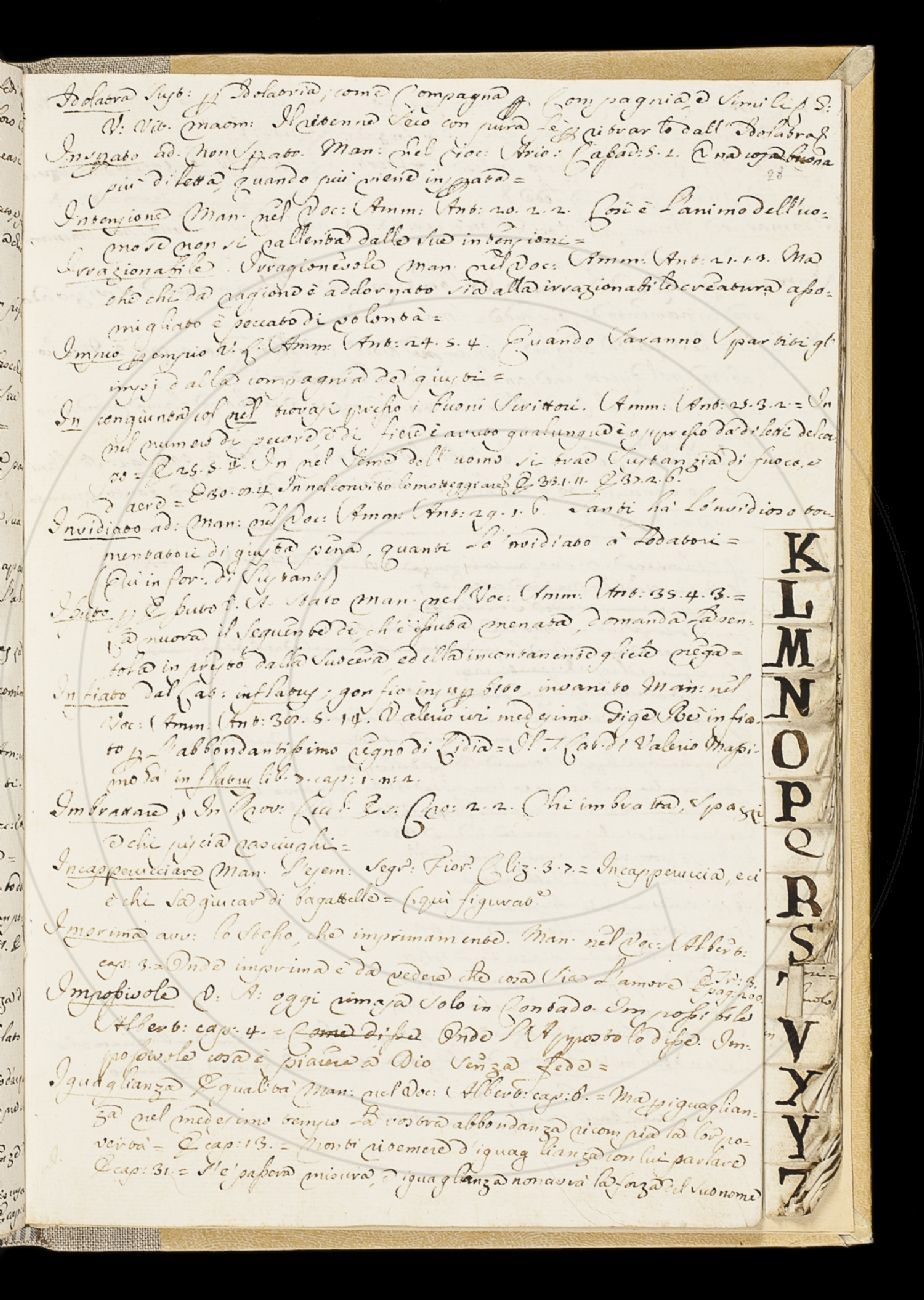 Idolatra Sust: p Idolatria, come Compagna p Compagnia e simili p S:
V: Vit. maom: Il ritenne seco con pura fe p ritrarlo dall' Idolatra
Insperato ad. Non Sperato. Man: nel Voc: Ario: Cassar: 5. 1. Una cosa buona
più diletta, quando più viene insperata =
Intenzione Man. nel Voc: Amm: Ant: 20. 2. 2. Così è l'animo dell'uo-
mo se non si rallenta dalle sue intenzioni =
Irrazionabile. Irragionevole Man. nel Voc: Amm: Ant: 21. 1. 3. Ma
che chi da ragione è addornato sia alla irrazionabile creatura asso-
migliato è peccato di volontà =
Impio p empio V. L. Amm: Ant: 24. 5. 4. Quando saranno spartiti gl'
impi dalla compagnia de' giusti =
In congiunta col nel trovasi presso i buoni Scrittori. Amm: Ant: 25. 3. 2. = In
nel numero di pecore e di fiere è avuto qualunque è oppresso da diletti della car
ne = E 25. 5. In nel seme dell'uomo si trae sustanzia di fuoco, e
d'aere = E 30. 4. In nel convito E 33. 1. 11. E 37. 2. 6.
Invidiato ad: Man: nel Voc: Amm: Ant: 29. 1. 6. Tanti ha lo 'nvidioso tor-
mentatori di giusta pena, quanti lo 'nvidiato à lodatori =
(Qui in for: di Sustant:)
Issuto p Essuto. V. A. stato Man. nel Voc: Amm: Ant: 35. 4. 3. =
La nuora il seguente dì, ch'è issuta menata, domanda la pen-
tola in presto dalla suocera ed ella incontanente gliele niega =
Infiato dal Lat: inflatus; gonfio insuperbito, invanito Man: nel
Voc: Amm: Ant: 30. 5. 14. Valerio ivi medesimo. Gige Re infia-
to p l'abbondantissimo regno di Lidia = Il T. Lat: di Valerio Massi-
mo ha inflatus lib: 7. cap: 1. n: 2.
Imbrattare, In Prov: 2. 2. Chi imbratta, spazzi
e chi piscia rasciughi =
Incapperucciare Man: l'esem: Segr: Fior: Cliz. 3. 7. = Incapperuccia, e ci
è chi sa giucar di bagattelle = (qui figurat:
Imprima avv: lo stesso, che imprimamente. Man: nel Voc: Albert:
cap: 3. = Onde imprima è da vedere che cosa sia l'amore
Impossivole V: A: oggi rimasa solo in Contado. Impossibile
Albert: cap: 4. = Come disse Onde l'Apposto lo disse. Im-
possivole cosa è piacere a Dio senza fede =
Iguaglianza Equalità Man: nel Voc: Albert: cap: 6. = Ma p iguaglian-
za nel medesimo tempo la vostra abbondanza riempia la lor po-
vertà = E cap: 13. = Non ti ritenere d'iguaglianza con lui parlare
E cap: 31. = S'e' passera misura, e iguaglianza non avrà la forza del suo nome
K
L
M
N
O
P
Q
R
S
T
V
X
Y
Z